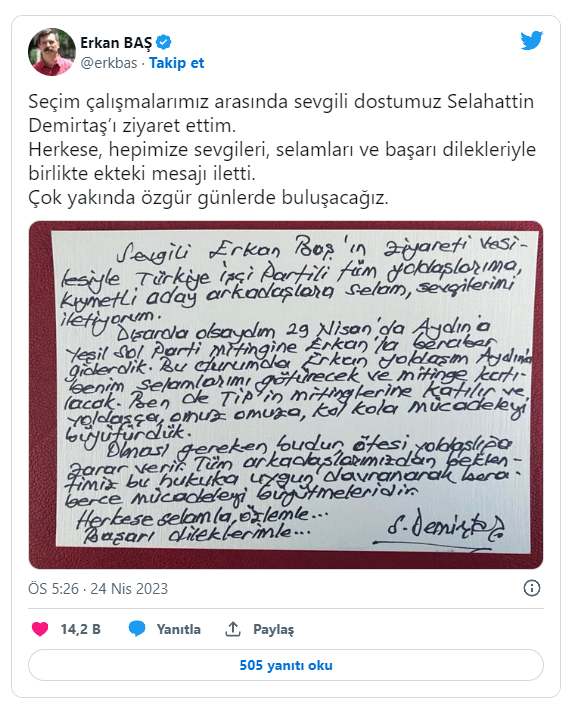 Erkan BAŞ
@erkbas · Takip et
Seçim çalışmalarımız arasında sevgili dostumuz Selahattin
Demirtaş’ı ziyaret ettim.
Herkese, hepimize sevgileri, selamları ve başarı dilekleriyle
birlikte ekteki mesajı iletti.
Çok yakında özgür günlerde buluşacağız.
Sevgili Erkan Baş'ın ziyareti vesi-
lesiyle Türkiye İşçi Partili tüm yoldaşlarıma,
kıymetli aday arkadaşlara selam, sevgilerimi
iletiyorum.
Dışarda olsaydım 29 Nisan'da Aydın'a
Yeşil Sol Parti mitingine Erkan'la beraber
giderdik. Bu durumda Erkan yoldaşım Aydın'a
benim selamlarımı götürecek ve mitinge katı-
lacak. Ben de TİP'in mitinglerine katılır ve
yoldaşça, omuz omuza, kol kola mücadeleyi
büyütürdük.
Olması gereken budur, ötesi yoldaşlığa
zarar verir. Tüm arkadaşlarımızdan beklen-
timiz bu hukuka uygun davranarak bera-
berce mücadeleyi büyütmeleridir.
Herkese selamla, özlemle...
Başarı dileklerimle...
S. Demirtaş
ÖS 5:26 · 24 Nis 2023
14,2 B
Yanıtla
Paylaş
505 yanıtı oku